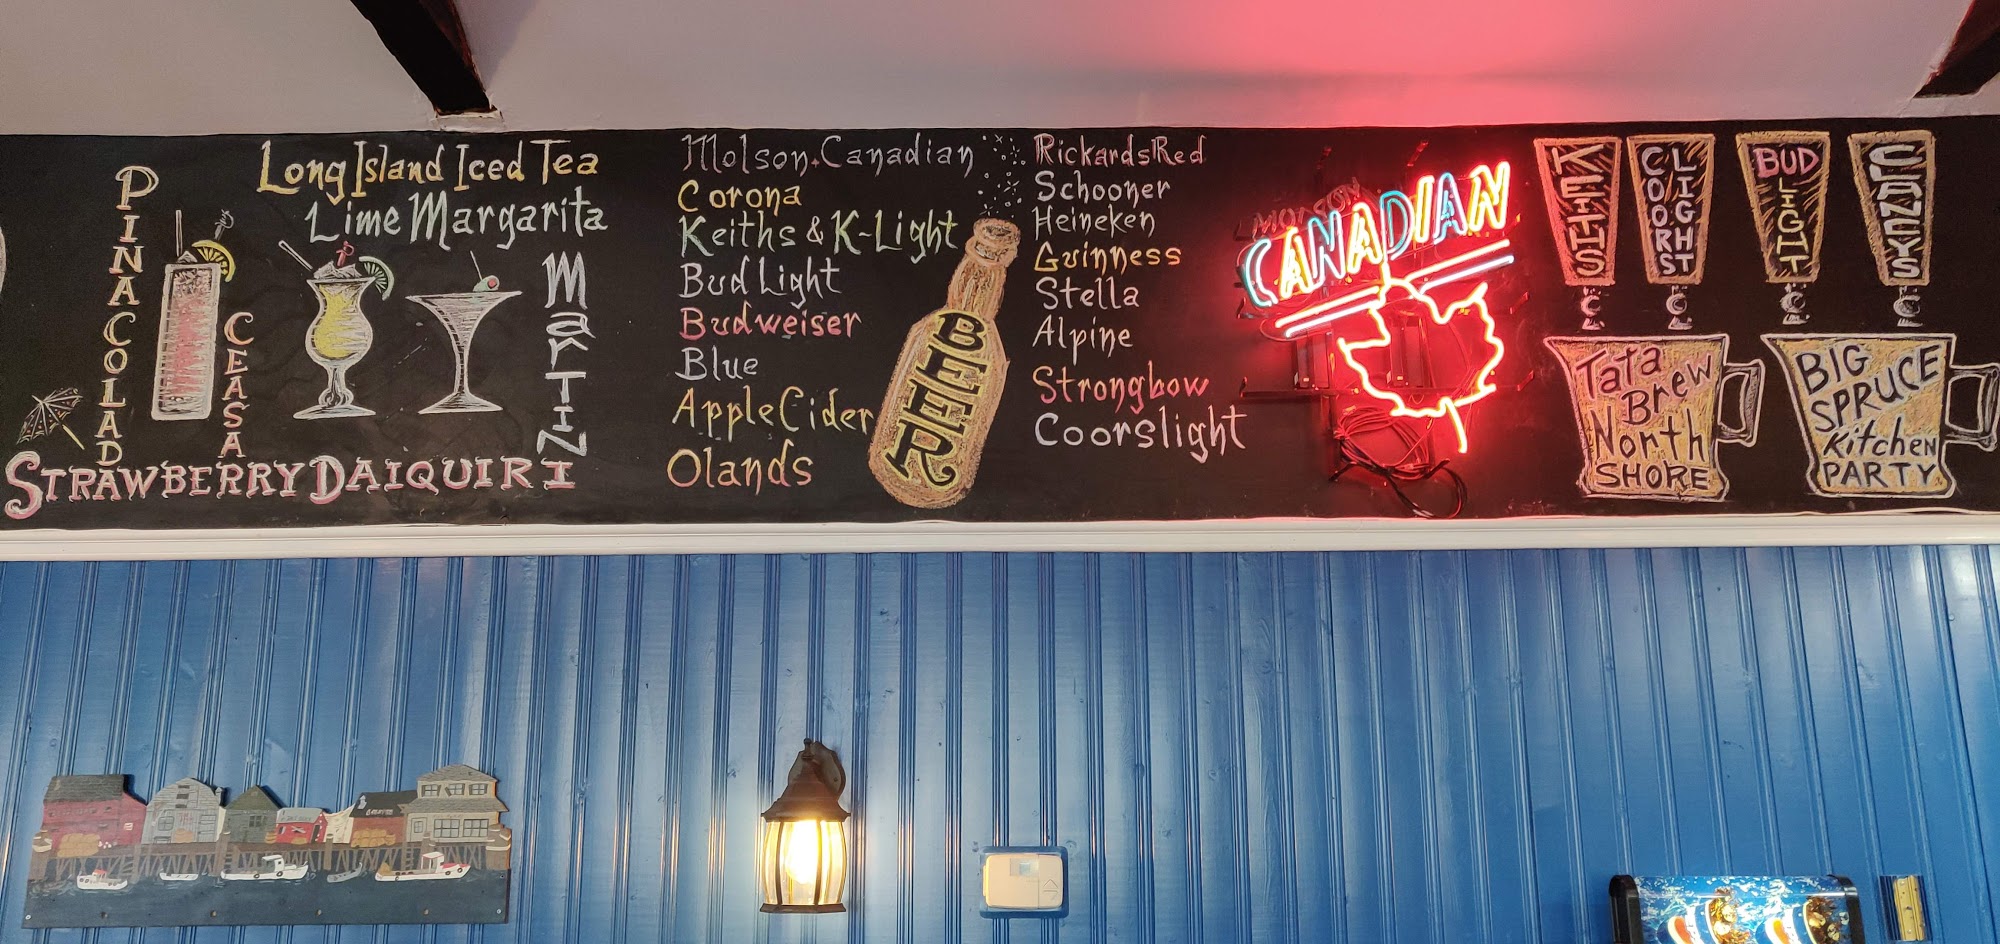 PINA COLADA
Long Island Iced Tea
Lime Margarita
CEASAR
MarTINI
STRAWBERRY DAIQUIRI
Molson Canadian
Corona
Keiths & K-Light
Bud Light
Budweiser
Blue
Apple Cider
Olands
BEER
Rickards Red
Schooner
Heineken
Guinness
Stella
Alpine
Strongbow
Coorslight
MOLSON
CANADIAN
KEITHS
COORS LIGHT
BUD LIGHT
CLANEYS
Tata
Brew
North
SHORE
BIG
SPRUCE
Kitchen
PARTY